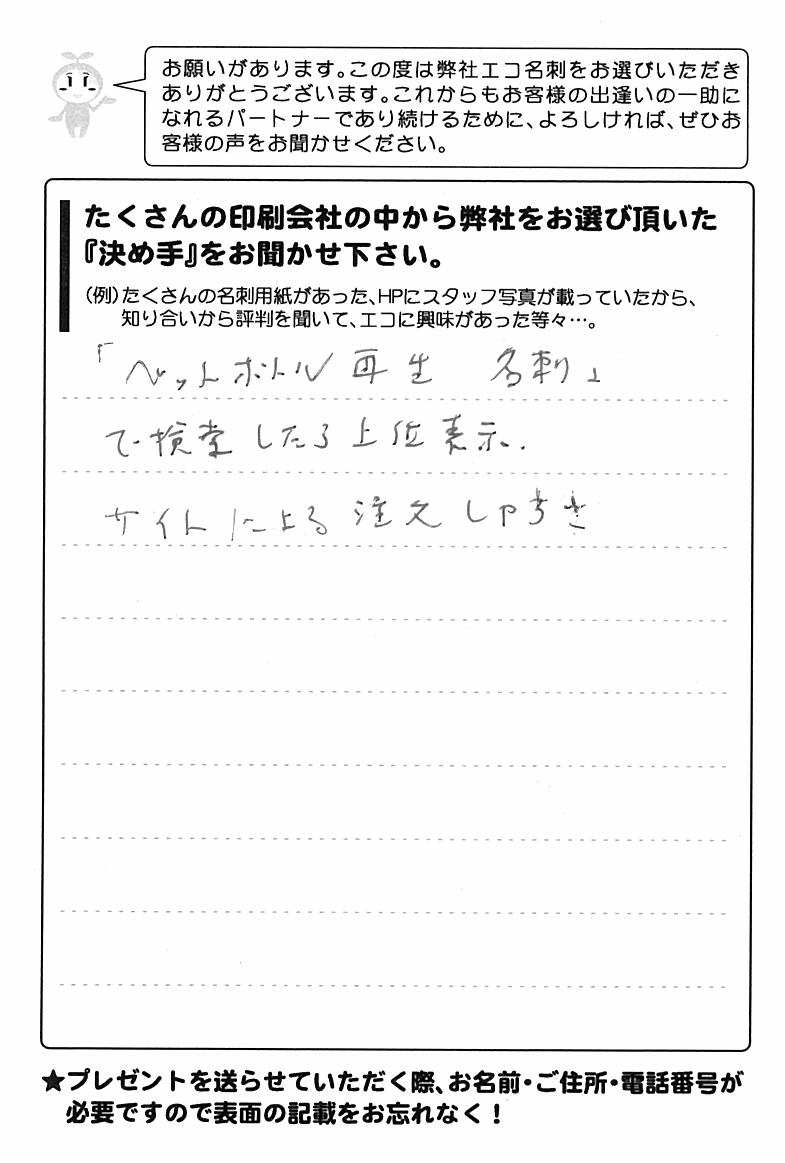 お願いがあります。この度は弊社エコ名刺をお選びいただき
ありがとうございます。これからもお客様の出逢いの一助に
なれるパートナーであり続けるために、よろしければ、ぜひお
客様の声をお聞かせください。
たくさんの印刷会社の中から弊社をお選び頂いた
『決め手』をお聞かせ下さい。
（例）たくさんの名刺用紙があった、HPにスタッフ写真が載っていたから、
知り合いから評判を聞いて、エコに興味があった等々…。
「ペットボトル再生 名刺」
で検索したら上位表示.
サイトによる注文しやすさ
★プレゼントを送らせていただく際、お名前・ご住所・電話番号が
必要ですので表面の記載をお忘れなく！